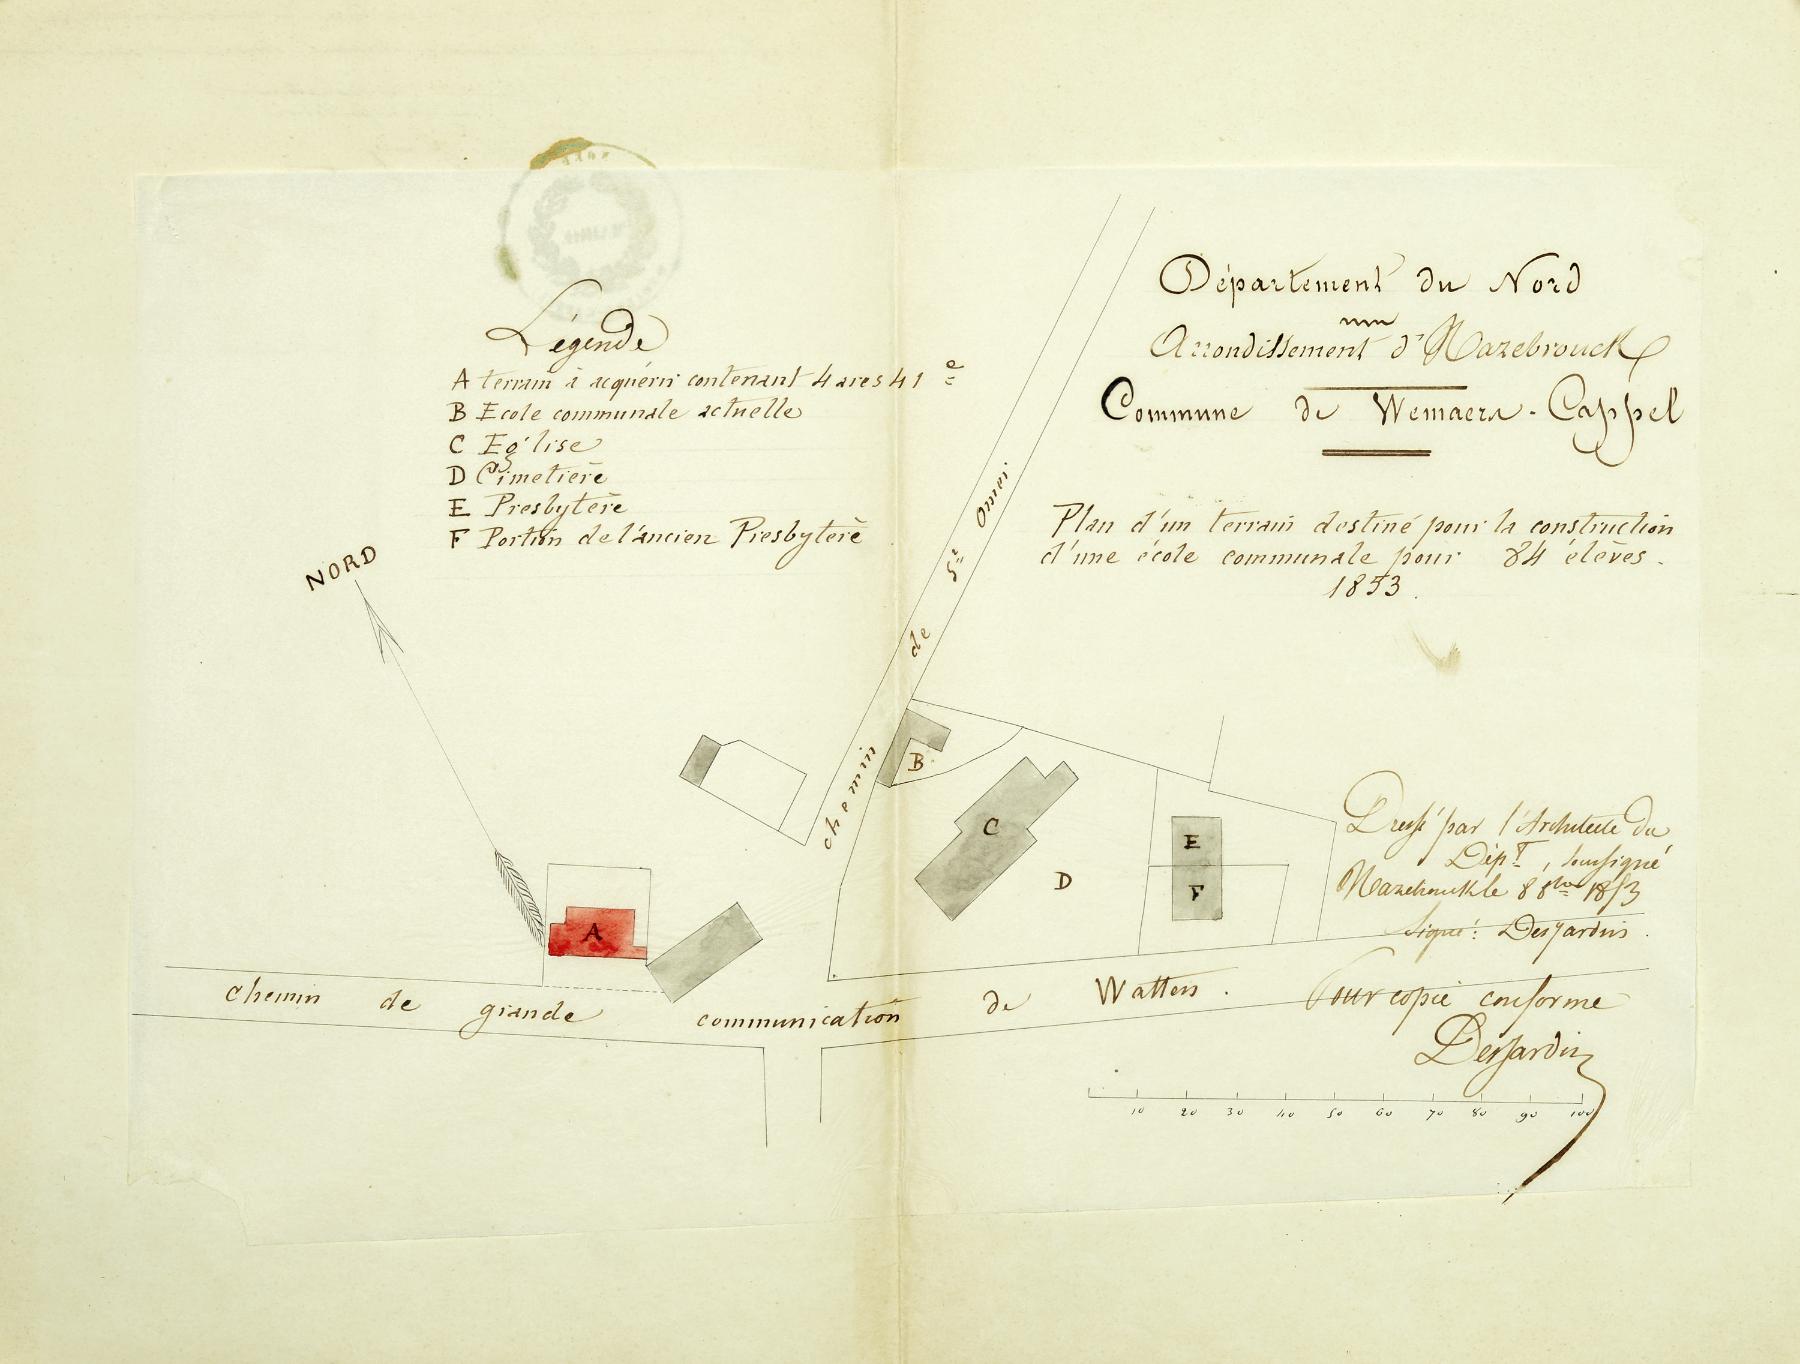 Département du Nord
Arrondissement d'Hazebrouck
Commune de Wemaers-Cappel
Plan d'un terrain destiné pour la construction
d'une école communale pour 84 élèves.
1853.
Légende
A terrain à acquérir contenant 4 ares 41 c
B Ecole communale actuelle
C Eglise
D Cimetière
E Presbytère
F Portion de l'ancien Presbytère
NORD
chemin de St Omer
B
C
E
D
F
A
Dressé par l'Architecte du
Dépt, soussigné
Hazebrouck le 8 8bre 1853
Signé: Desjardins.
chemin de grande communication de Watten.
Pour copie conforme
Desjardin
10 20 30 40 50 60 70 80 90 100